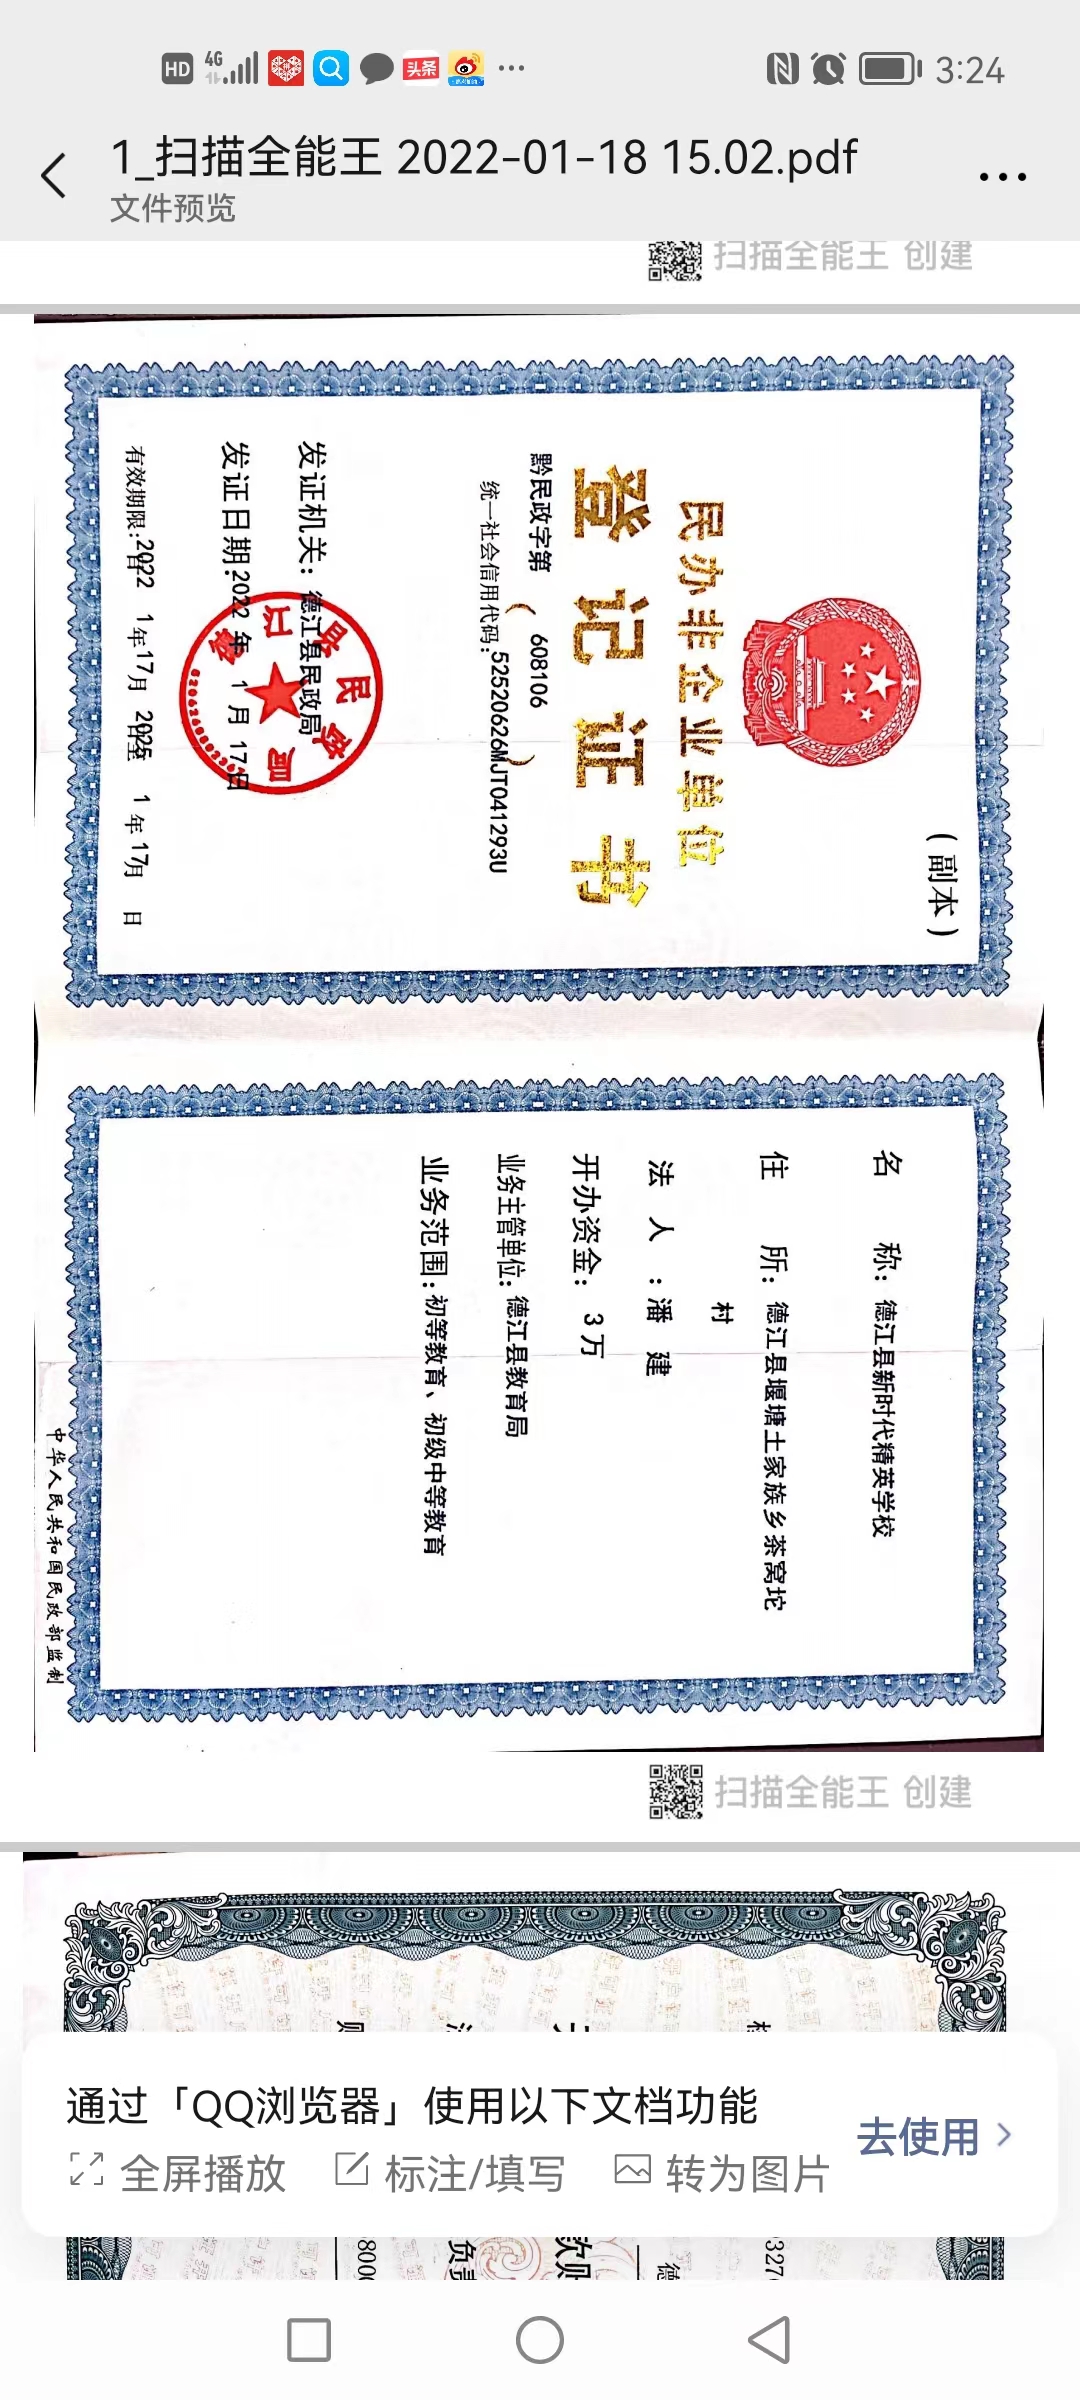 HD 4G 头条 3:24
1_扫描全能王 2022-01-18 15.02.pdf
文件预览
扫描全能王 创建
(副本)
民办非企业单位
登记证书
黔民政字第（608106）
统一社会信用代码：52520626MJT041293U
发证机关：德江县民政局
发证日期：2022年1月17日
有效期限：自2022 1年17月 2025至 1年17月 日
德江县民政局
名称：德江县新时代精英学校
住所：德江县堰塘土家族乡茶窝坨
村
法人：潘建
开办资金：3万
业务主管单位：德江县教育局
业务范围：初等教育、初级中等教育
中华人民共和国民政部监制
扫描全能王 创建
通过「QQ浏览器」使用以下文档功能
去使用
全屏播放 标注/填写 转为图片
327
德
负责
800